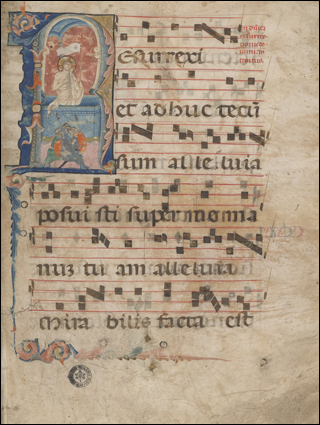 esurrexi
et adhuc tecū
sum alleluia
posui sti super me ma
nuz tu am alleluia
Mira bilis facta est